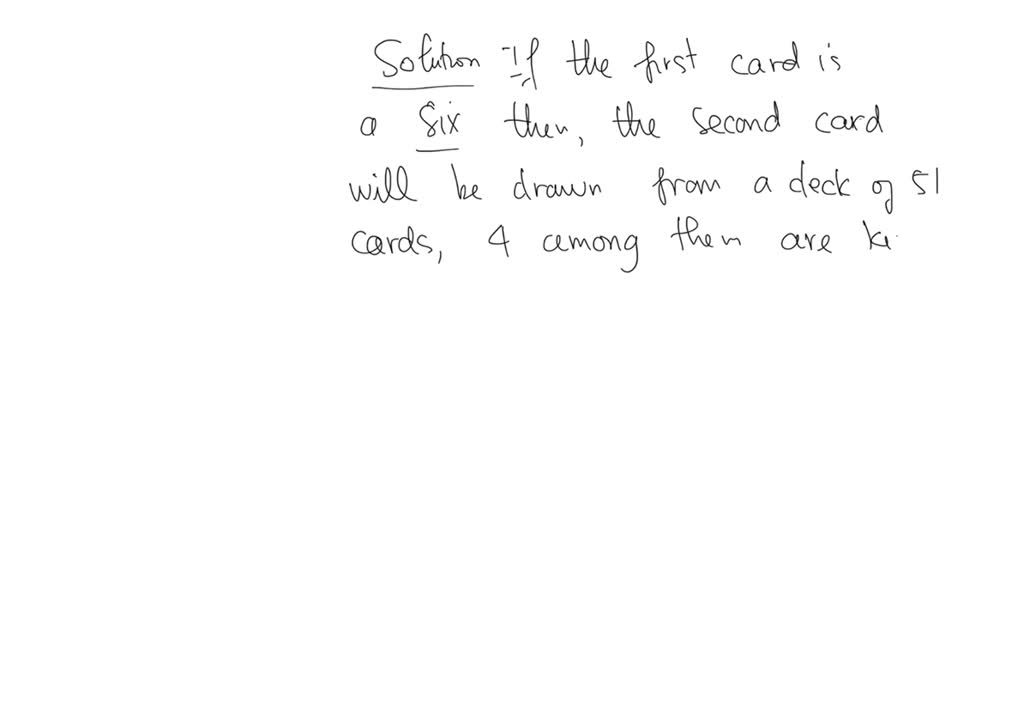 Solution :- If the first card is
a six then, the second card
will be drawn from a deck of 51
cards, 4 among them are ki